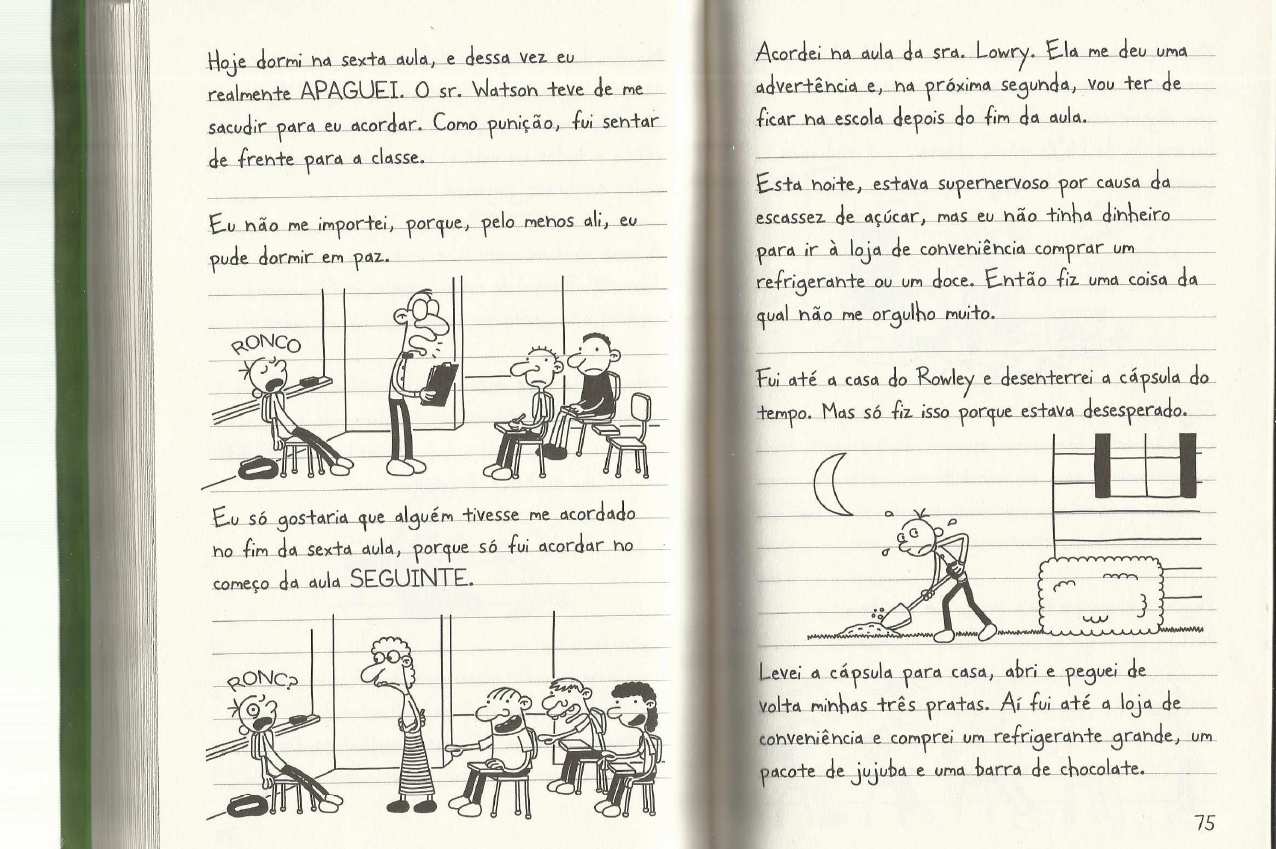 Hoje dormi na sexta aula, e dessa vez eu
realmente APAGUEI. O sr. Watson teve de me
sacudir para eu acordar. Como punição, fui sentar
de frente para a classe.
Eu não me importei, porque, pelo menos ali, eu
pude dormir em paz.
RONCO
Eu só gostaria que alguém tivesse me acordado
no fim da sexta aula, porque só fui acordar no
começo da aula SEGUINTE.
RONC?
Acordei na aula da sra. Lowry. Ela me deu uma
advertência e, na próxima segunda, vou ter de
ficar na escola depois do fim da aula.
Esta noite, estava supernervoso por causa da
escassez de açúcar, mas eu não tinha dinheiro
para ir à loja de conveniência comprar um
refrigerante ou um doce. Então fiz uma coisa da
qual não me orgulho muito.
Fui até a casa do Rowley e desenterrei a cápsula do
tempo. Mas só fiz isso porque estava desesperado.
Levei a cápsula para casa, abri e peguei de
volta minhas três pratas. Aí fui até a loja de
conveniência e comprei um refrigerante grande, um
pacote de jujuba e uma barra de chocolate.
75